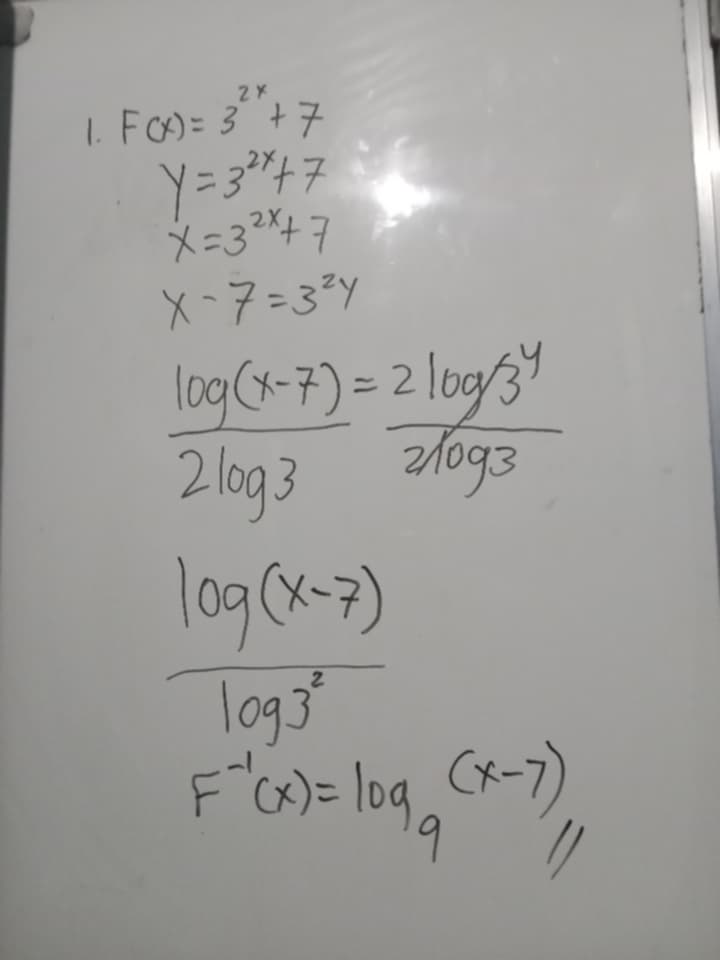 1. F(x) = 3^2x + 7
y = 3^2x + 7
x = 3^2x + 7
x - 7 = 3^2y
log(x-7) = 2 log 3^y
2 log 3 2 log 3
log(x-7)
log 3^2
F^-1(x) = log_9 (x-7) //